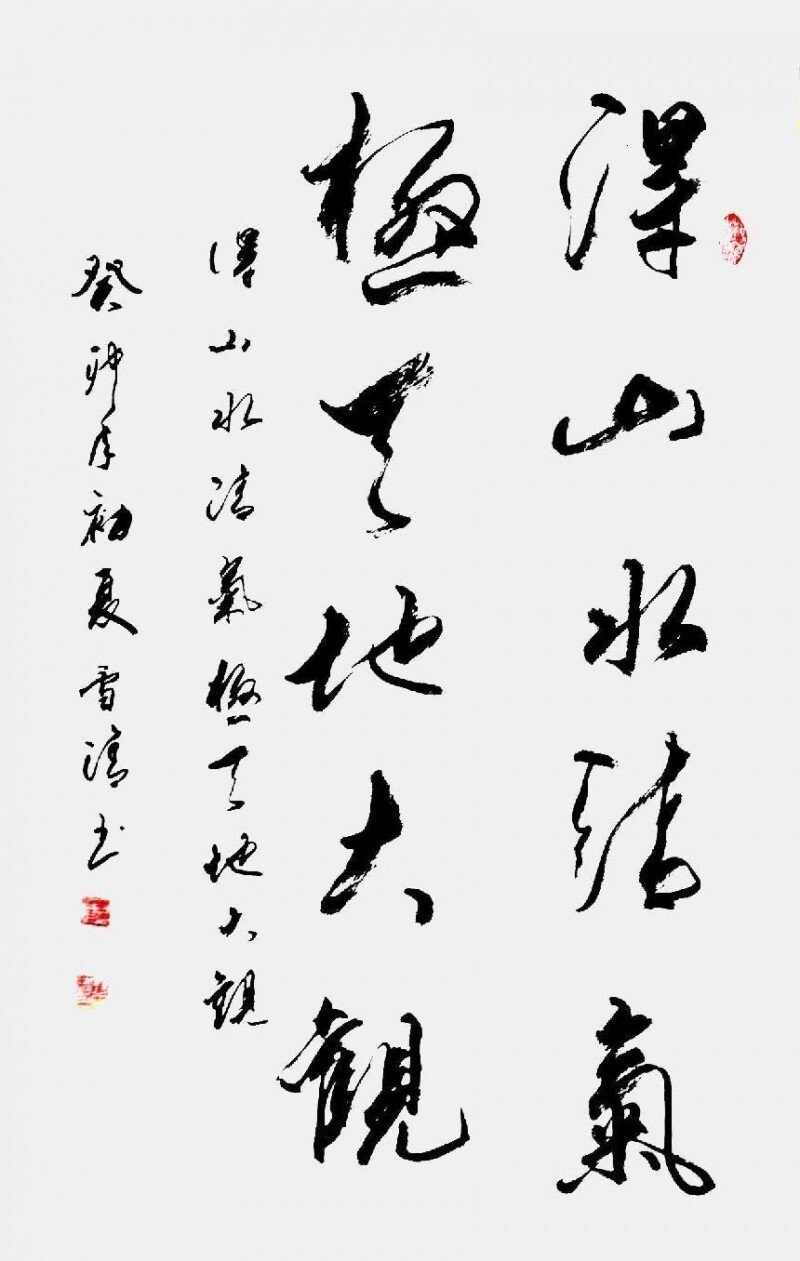 得山水清氣
極天地大觀
得山水清氣極天地大觀
癸卯年初夏雪清书